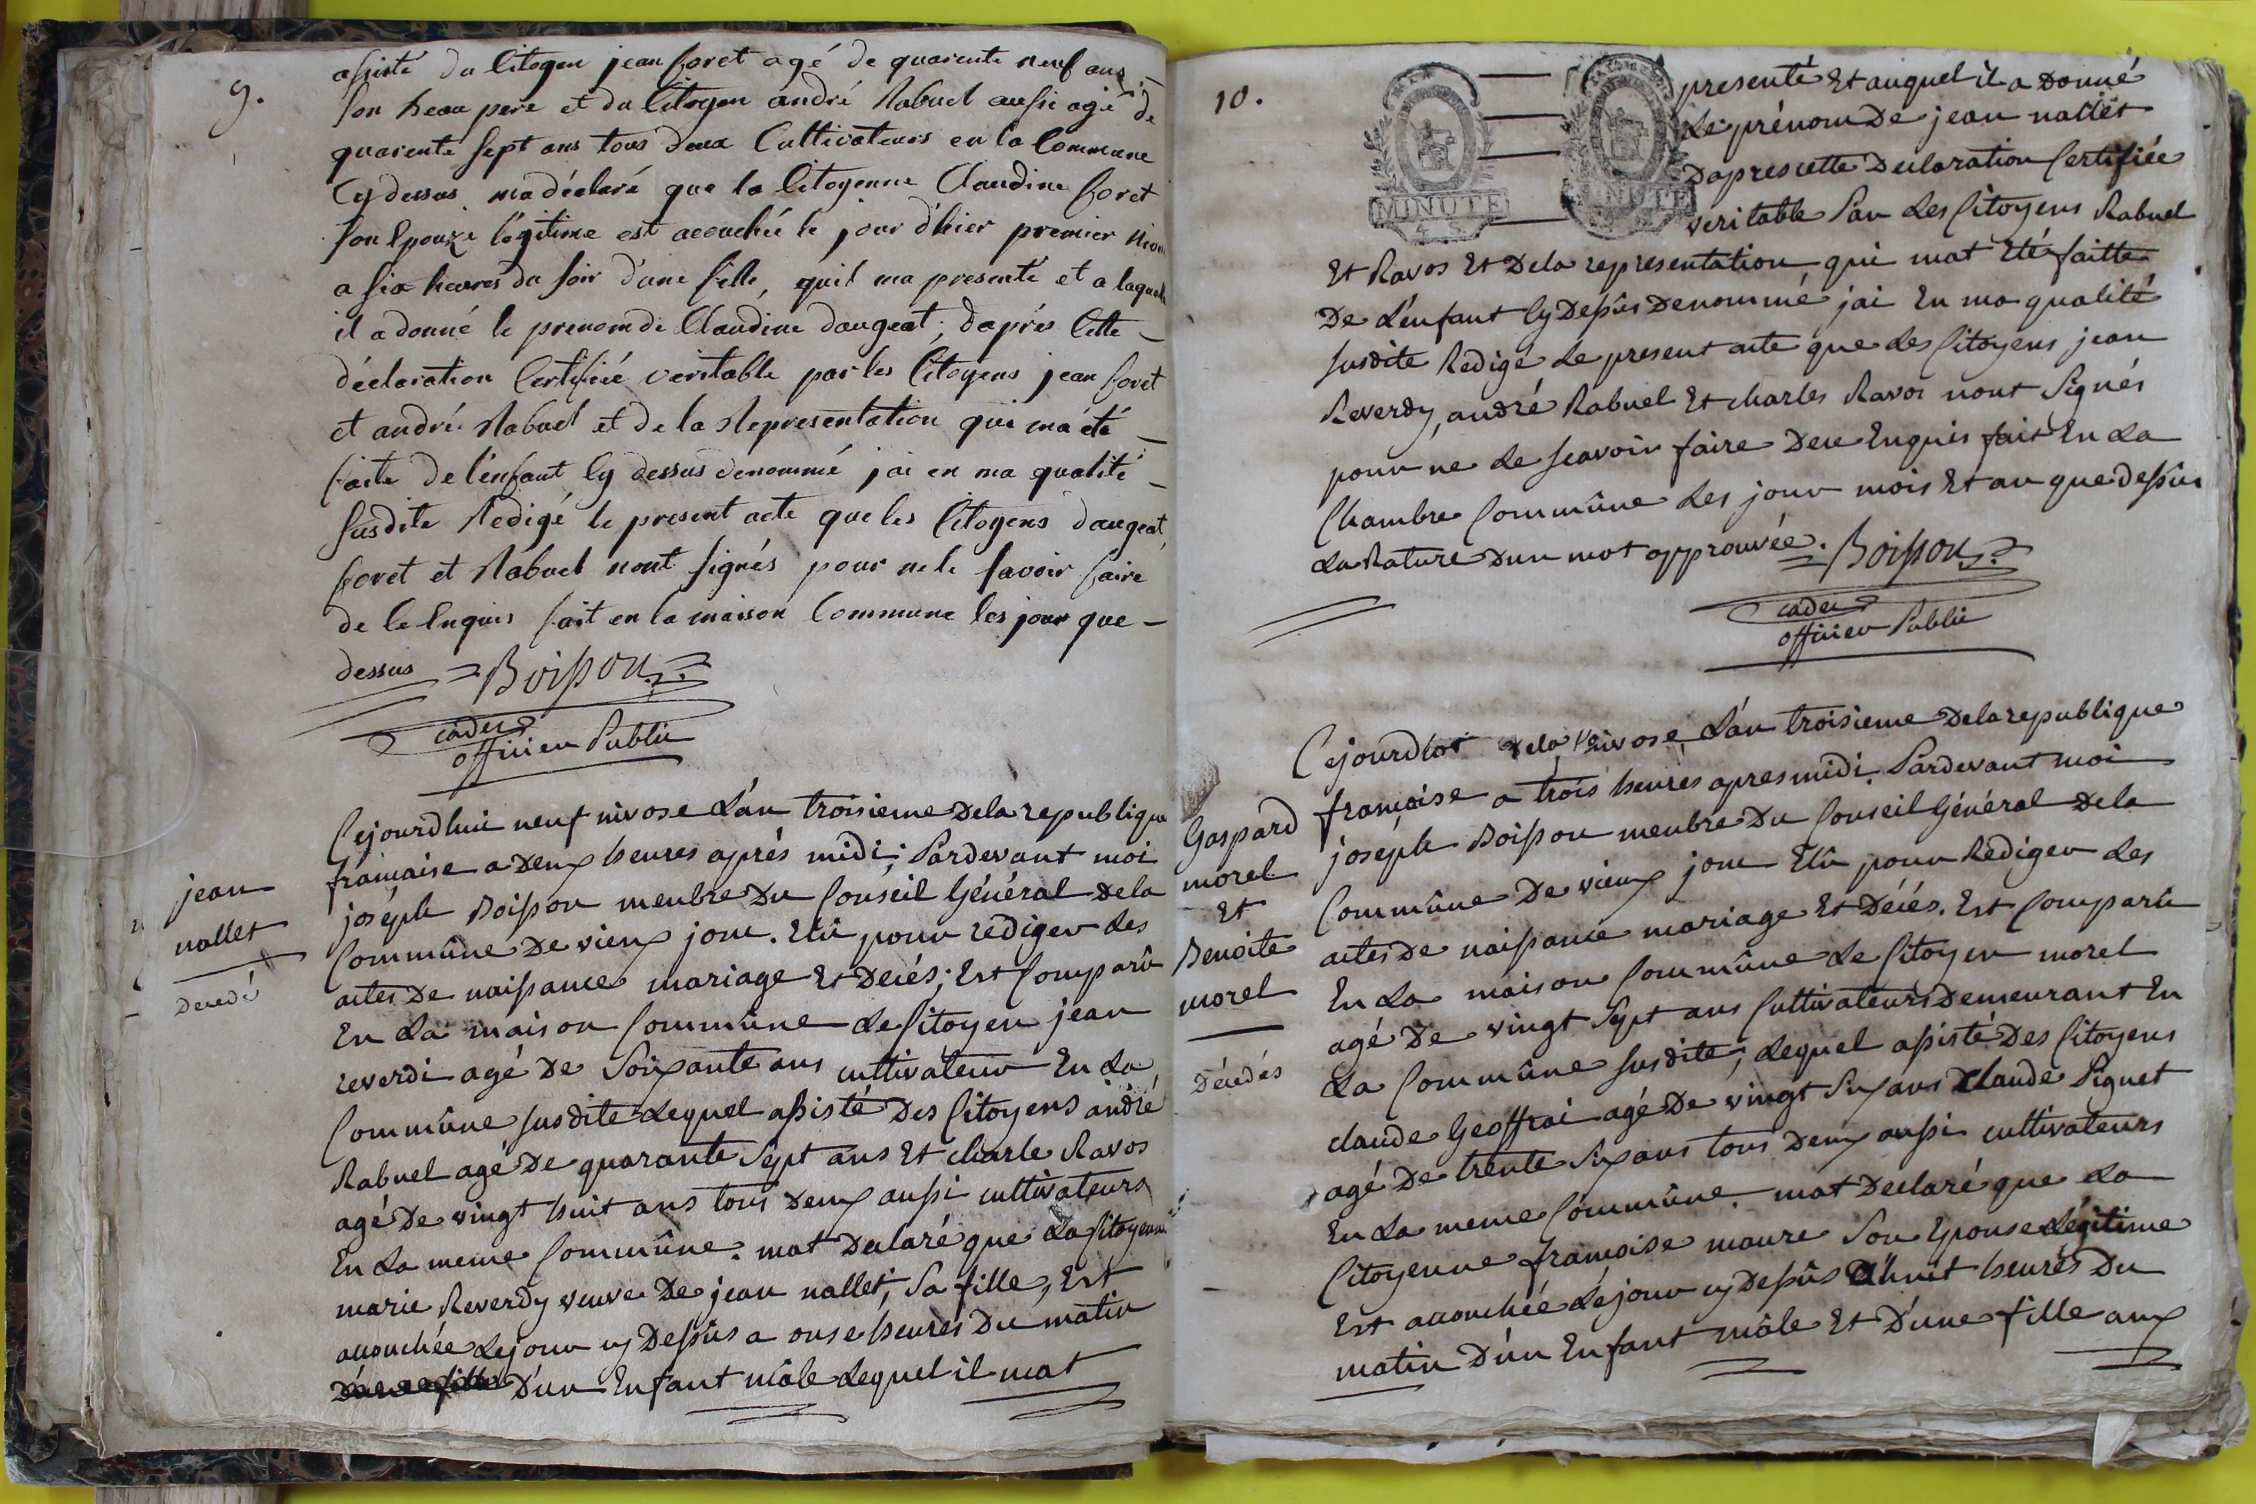 9.
assisté du Citoyen jean foret agé de quarente neuf ans
son beau pere et du Citoyen andré Rabuel aussi agé de
quarente sept ans tous deux Cultivateurs en la Commune
Cy dessus ma déclaré que la Citoyenne Claudine foret
son Epouze légitime est acouchée le jour d'hier premier
a six heures du soir d'une fille, quil ma presenté et a laquelle
il a donné le prenom de Claudine daugeat; d'aprés Cette
déclaration Certifiée veritable par les Citoyens jean foret
et andré Rabuel et de la Représentation qui m'a été
faite de l'enfant Cy dessus denommé j'ai en ma qualité
susdite Redigé le present acte que les Citoyens daugeat,
foret et Rabuel n'ont signés pour ne le savoir faire
de Ce Enquis fait en la maison Commune les jour que
dessus = Boisson
cadet
officier Public
jean
nallet
decedé
Cejourdhui neuf nivose L'an troisieme De la republique
francaise a Deux heures aprés midi; Pardevant moi
joséph Boisson menbre Du Conseil Général De la
Commûne De vieux jonc. Elû pour rediger Les
actes De naissance mariage Et Décés; Est Comparû
En La maison Commûne Le Citoyen jean
reverdi agé De Soixante ans cultivateur En La
Commûne susdite Lequel assisté Des Citoyens andré
Rabuel agé De quarante Sept ans Et charle Ravos
agé De vingt huit ans tous Deux aussi cultivateurs
En La meme Commûne. mat Declaré que La Citoyenne
marie Reverdy veuve De jean nallet, Sa fille, Est
acouchée Le jour cy Dessûs a onse heures Du matin
D'une fille D'un Enfant mâle Lequel il mat
10.
MINUTE
4 S
MINUTE
presenté Et auquel il a Donné
Le prénom De jean nallet
D'apres cette Declaration Certifiée
veritable Par Les Citoyens Rabuel
Et Ravos Et De la representation qui mat Eté faitte
De L'enfant Cy Dessûs Denommé jai En ma qualité
susdite Redigé Le present acte que Les Citoyens jean
Reverdy, andré Rabuel Et charles Ravos n'ont Signés
pour ne Le scavoir faire De ce Enquis fait En La
Chambre Commûne Les jour mois Et an que dessûs
La Rature D'un mot approuvée. = Boisson
cadet
officier Public
Gaspard
morel
Et
Benoite
morel
Décedés
Cejourdhui nivose L'an troisieme De la republique
françoise a trois heures apres midi. Pardevant moi
joséph Boisson menbre Du Conseil Général De la
Commûne De vieux jonc Elû pour Rediger Les
actes De naissance mariage Et Décés. Est Comparû
En La maison Commûne Le Citoyen morel
agé De vingt Sept ans Cultivateurs Demeurant En
La Commûne susdite; Lequel assisté Des Citoyens
claude Geoffrai agé De vingt Six ans claude Piguet
agé De trente Six ans tous Deux aussi cultivateurs
En La meme Commûne. mat Declaré que La
Citoyenne françoise maure Son Epouse Légitime
Est acouchée Le jour cy Dessûs a huit heures Du
matin D'un Enfant mâle Et D'une fille aux